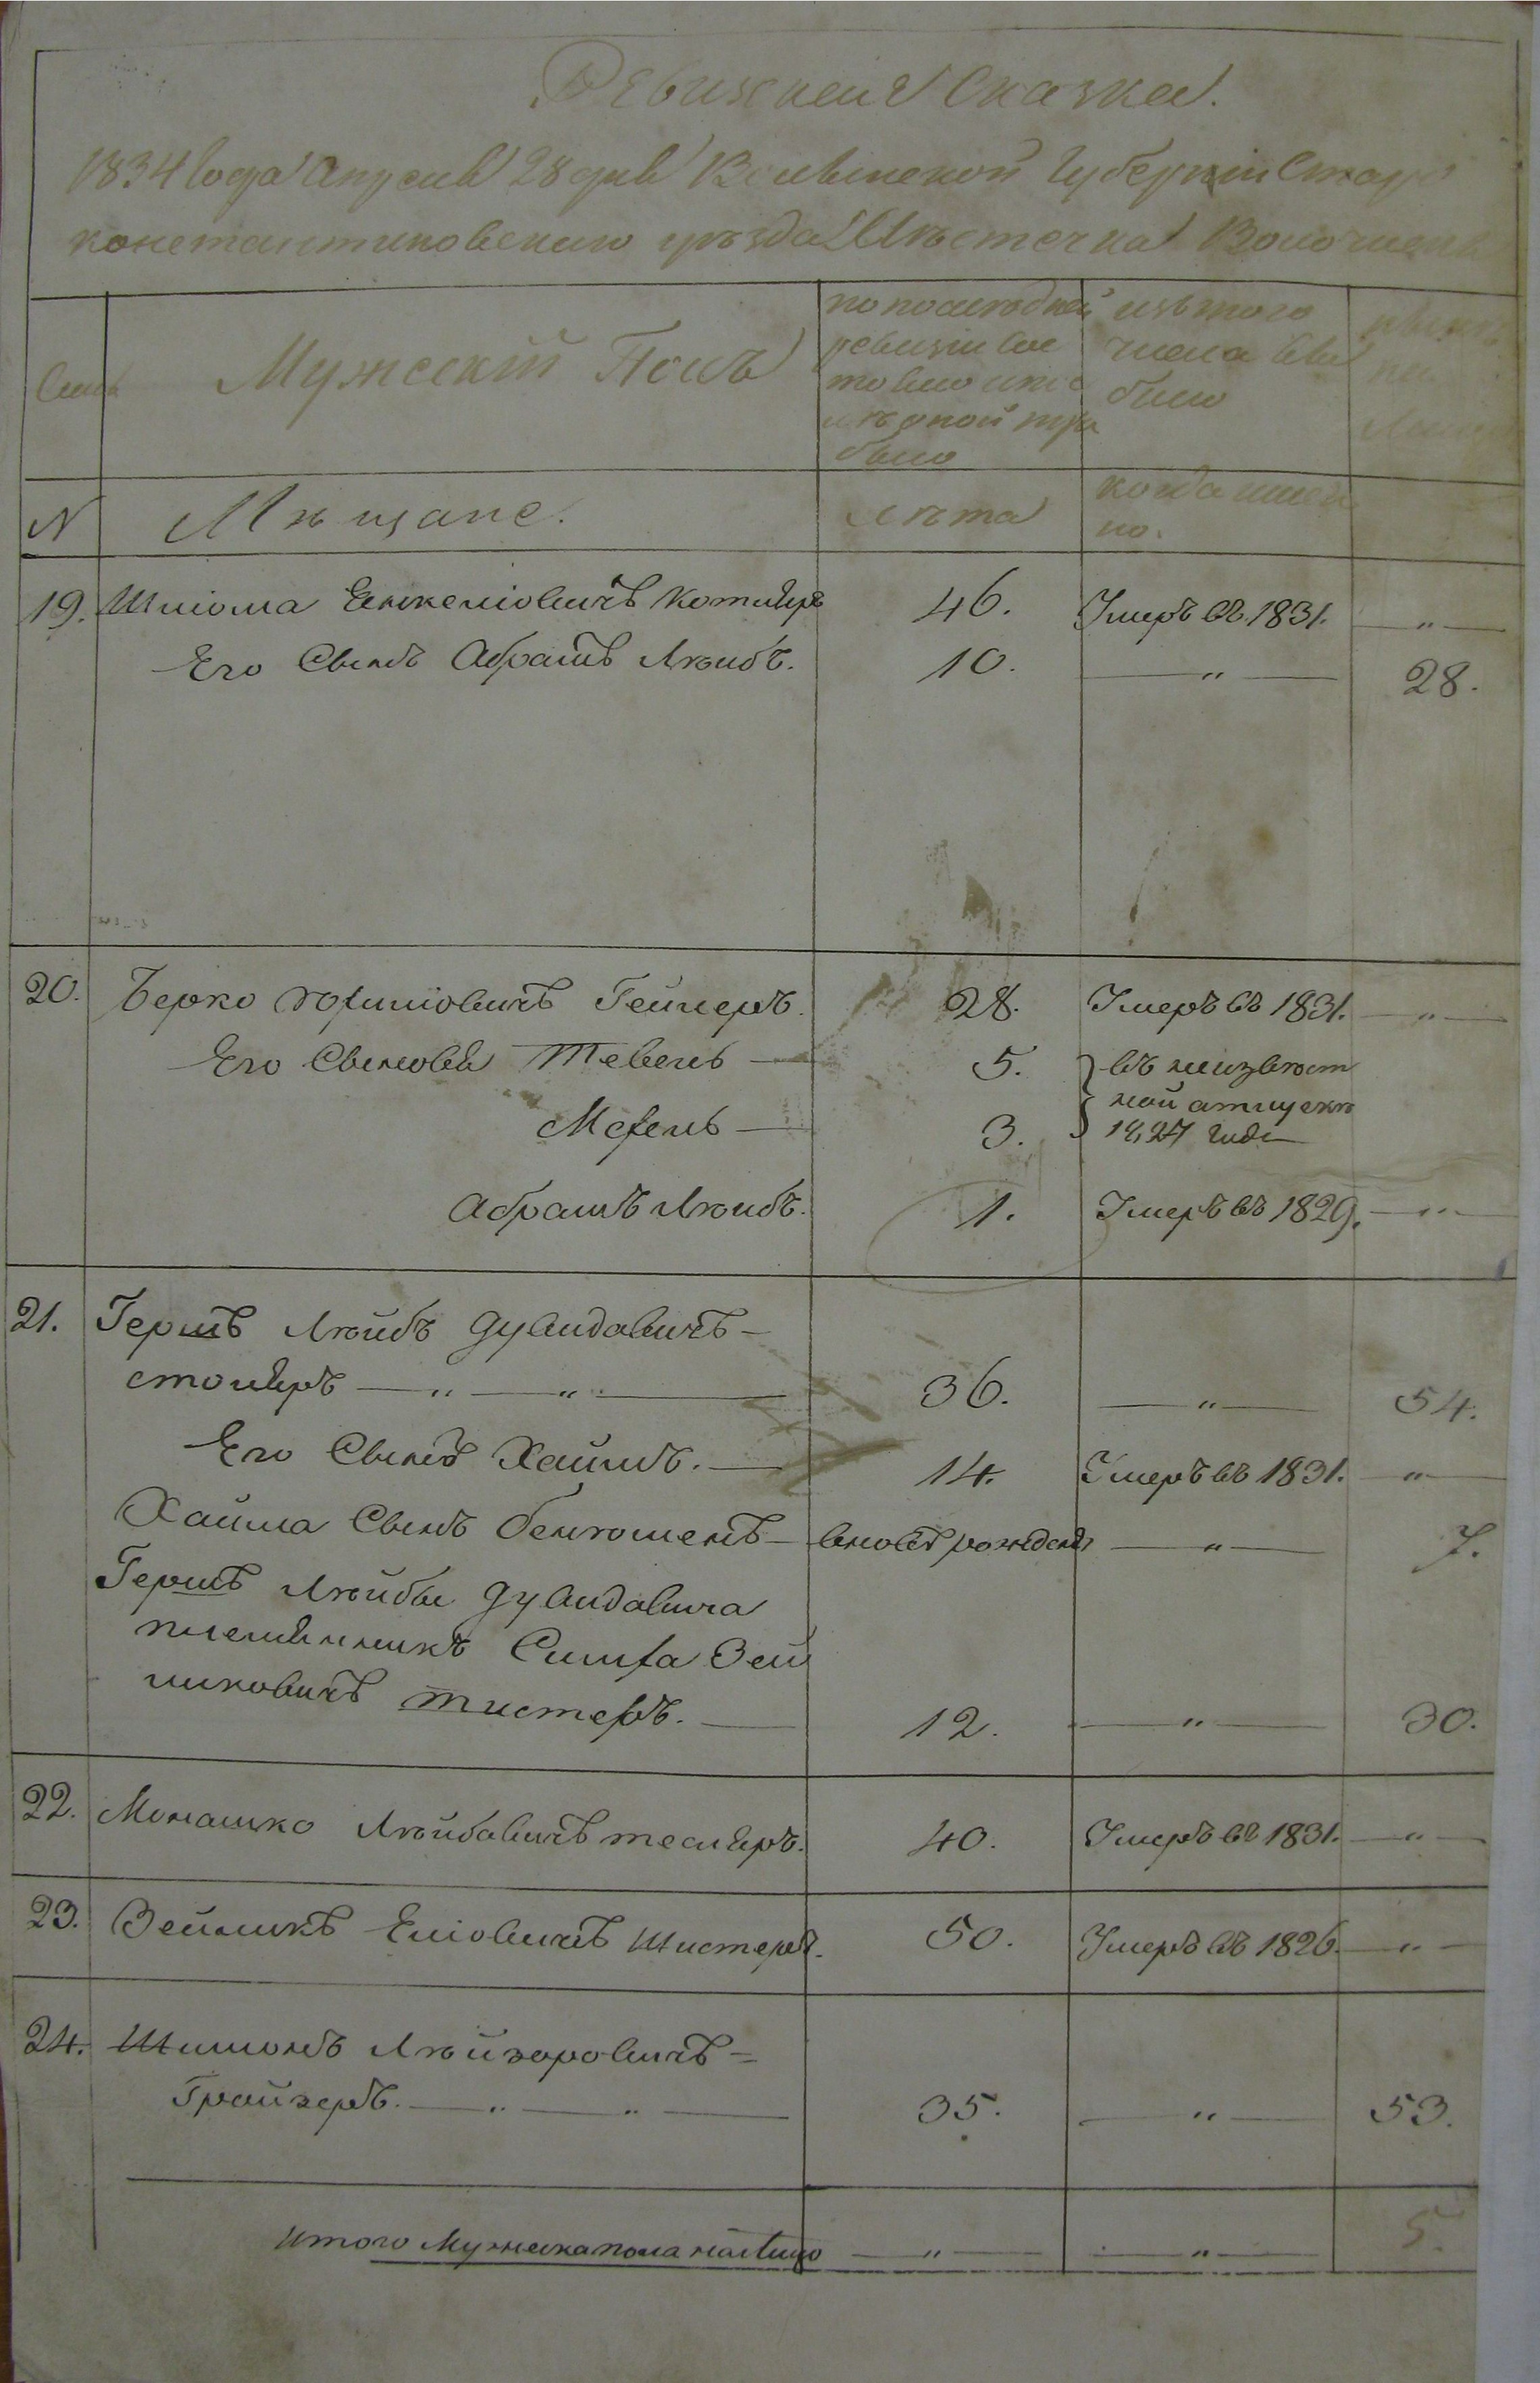 Ревизкая Сказка.
1834 Года Апреля 28 дня Волынской Губерніи Старо
константиновскаго уѣзда Мѣстечка Волочиска
Семья Мужескій Полъ по последней ревизіи сос
тояло и после оной при
было изъ того числа вы
было нынѣ на Лицо
N Мѣщане. Лѣта когда имен
но.
19. Шліома Янкеліовичъ Котляръ 46. Умеръ въ 1831. — " —
Его Сынъ Абрамъ Лѣйбъ. 10. — " — 28.
20. Берко Гейнеръ. 28. Умеръ въ 1831. — " —
Его Сыновья Тевель — 5. } въ неизвѣст
ной отлучкѣ
Мехель — 3. 1827 Года
Абрамъ Лѣйбъ. 1. Умеръ въ 1829. — " —
21. Гершъ Лѣйбъ Дувидовичъ —
столяръ — " — " — 36. — " — 54.
Его Сынъ Хаимъ. — 14. Умеръ въ 1831. — " —
Хаима Сынъ Бенюменъ — вновь рожденъ — " — 7.
Гершъ Лѣйбы Дувидовича
племянникъ Симха Зей
ликовичъ Тистеръ. — 12. — " — 30.
22. Монашко Лѣйбовичъ тесляръ. 40. Умеръ въ 1831. — " —
23. Зейликъ Еліовичъ Шистеръ. 50. Умеръ въ 1826. — " —
24. Шимонъ Лѣйзоровичъ =
Грайзеръ. — " — " — 35. — " — 53.
Итого Мужеска пола налицо — " — — " — 5.